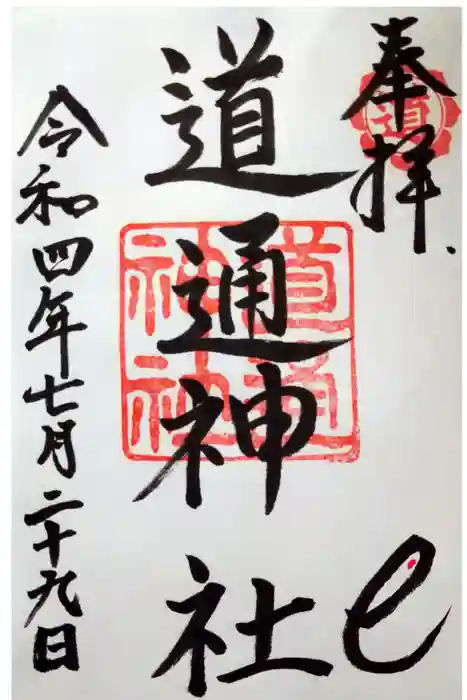 奉拝
道
道通神社
道通神社
令和四年七月二十九日